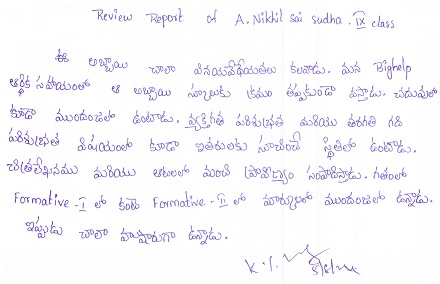 Review Report of A. Nikhil sai sudha. IX class
ఈ అబ్బాయి చాలా వినయవిధేయతలు కలవాడు. మన Bighelp
ఆర్థిక సహాయంలో ఆ అబ్బాయి స్కూలుకు క్రమం తప్పకుండా వస్తాడు. చదువులో
కూడా ముందంజలో ఉంటాడు. వ్యక్తిగత పరిశుభ్రత మరియు తరగతి గది
పరిశుభ్రత విషయంలో కూడా ఇతరులకు సూచించే స్థితిలో ఉంటాడు.
చిత్రలేఖనము మరియు ఆటలలో మంచి ప్రావీణ్యం సంపాదిస్తాడు. గతంలో
Formative - I లో కంటే Formative - II లో మార్కులలో ముందంజలో ఉన్నాడు.
ఇప్పుడు చాలా హుషారుగా ఉన్నాడు.